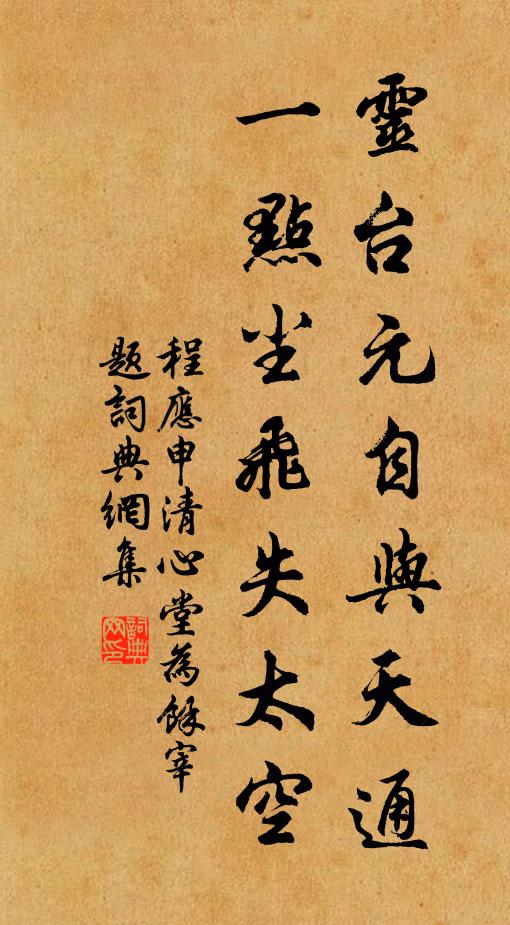 靈台元自與天通
一點尘飛失太空
程應申清心堂為餘宰
題詞典網集
詞典网印